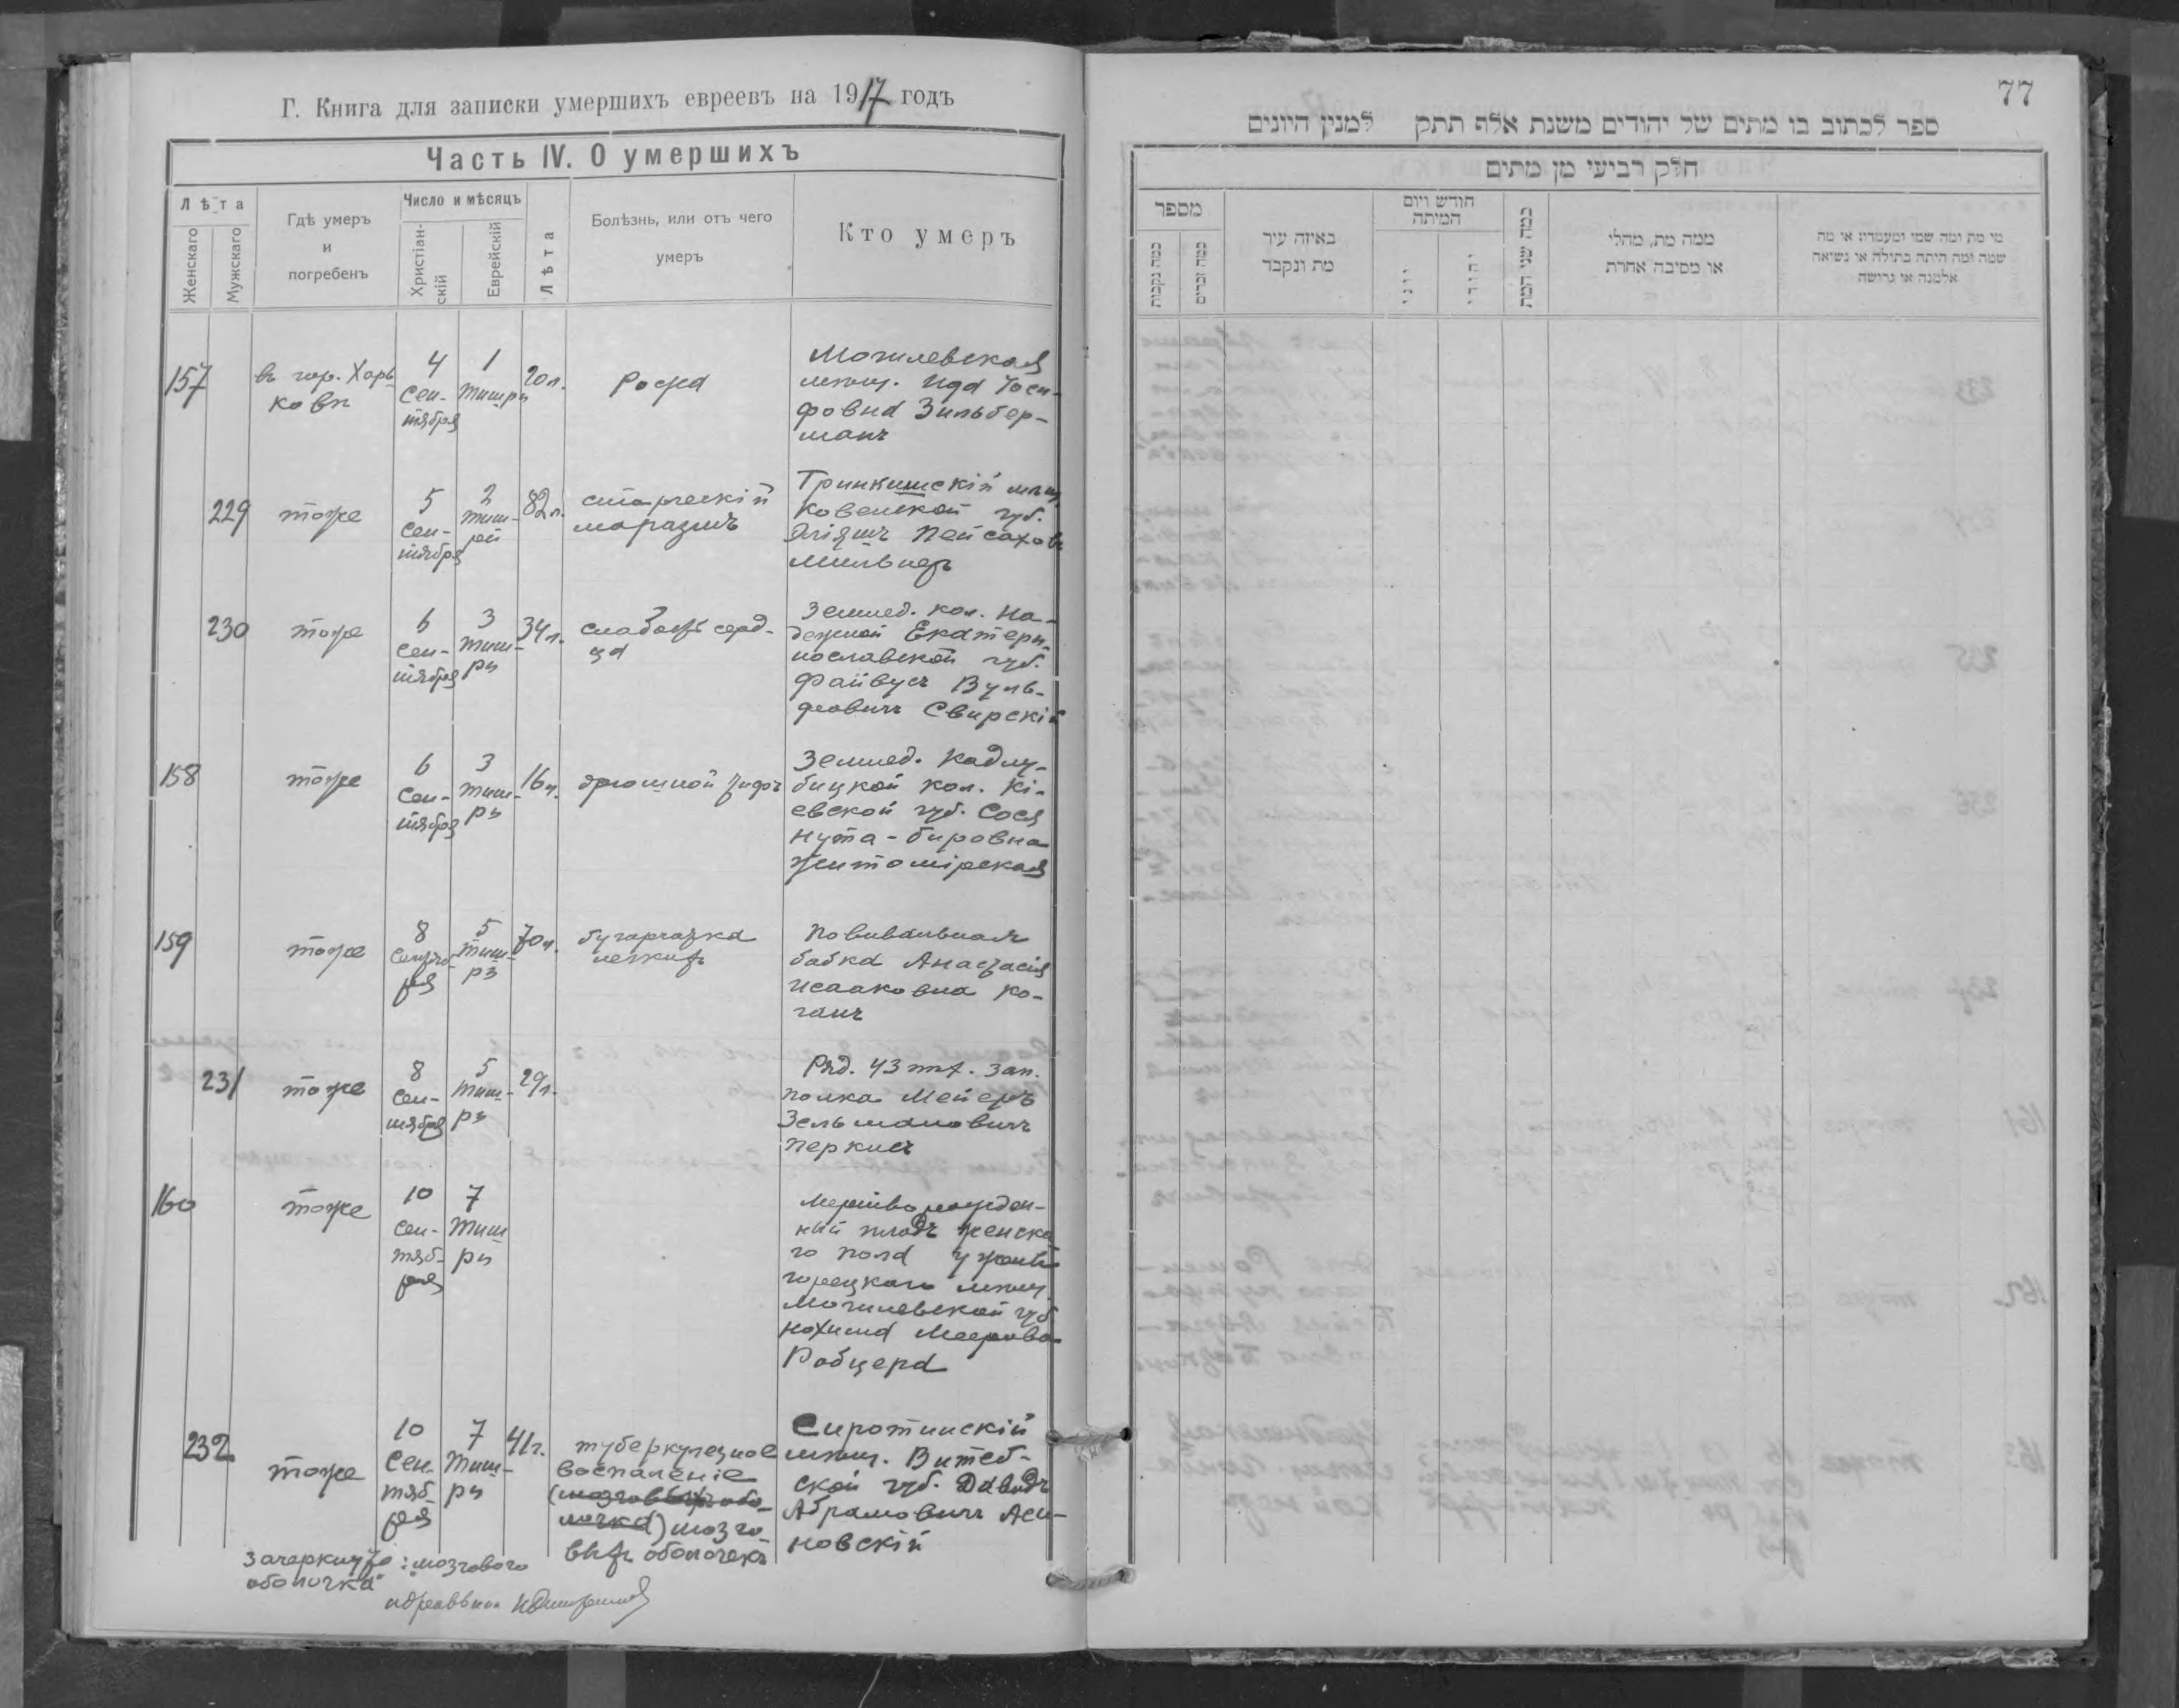 Г. Книга для записки умершихъ евреевъ на 1917 годъ
Часть IV. О умершихъ
Лѣта
Женскаго
Мужскаго
Гдѣ умеръ
и
погребенъ
Число и мѣсяцъ
Христіан-
скій
Еврейскій
Лѣта
Болѣзнь, или отъ чего
умеръ
Кто умеръ
157
въ гор. Харь
ковѣ
4
Сен-
тября
1
Тишри
20 л.
Рожа
Могилевская
мѣщ. Ида Іоси-
фовна Зильбер-
манъ
229
тоже
5
Сен-
тября
2
Тиш-
ри
82 л.
старческій
маразмъ
Тринкишскій мѣщ.
Ковенской губ.
Эліяшъ Пейсаховъ
Мильнеръ
230
тоже
6
Сен-
тября
3
Тиш-
ри
34 л.
слабость серд-
ца
Землед. кол. На-
дежной Екатери-
нославской губ.
Файвусъ Вуль-
фовичъ Свирскій
158
тоже
6
Сен-
тября
3
Тиш-
ри
16 л.
брюшной тифъ
Землед. Кадлу-
бицкой кол. Кі-
евской губ. Сося
Нута-Беровна
Житомірская
159
тоже
8
Сентяб-
ря
5
Тиш-
ри
70 л.
бугорчатка
легкихъ
Повивальная
бабка Анастасія
Исааковна Ко-
ганъ
231
тоже
8
Сен-
тября
5
Тиш-
ри
29 л.
Ряд. 43 пѣх. зап.
полка Мейеръ
Зельмановичъ
Перкисъ
160
тоже
10
Сен-
тяб-
ря
7
Тиш
ри
Мертворожден-
ный плодъ женска
го пола у жены
горецкаго мѣщ.
Могилевской губ
Нохима Меерова
Рабцера
232
тоже
10
Сен-
тяб-
ря
7
Тиш-
ри
41 г.
туберкулезное
воспаленіе
(мозговыхъ обо-
лочка) мозго-
выхъ оболочекъ
Сиротинскій
мѣщ. Витеб-
ской губ. Давидъ
Абрамовичъ Аси-
новскій
Зачеркнуто: „мозгового
оболочка"
77
ספר לכתוב בו מתים של יהודים משנת אלף תתק למנין היונים
חלק רביעי מן מתים
מספר
כמה נקבות
כמה זכרים
באיזה עיר
מת ונקבר
חודש ויום
המיתה
יוני
יהודי
כמה שני המת
ממה מת, מחלי
או מסיבה אחרת
מי מת ומה שמו ומעמדו: או מה
שמה ומה היתה בתולה או נשואה
אלמנה או גרושה